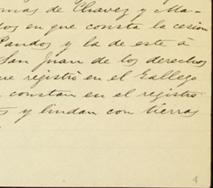 mas de Chavez y Ma-
dos en que consta la cesion
Pandos y la de este á
San Juan de los derechos
que registró en el Gallego
constan en el registro
s y lindan con tierras